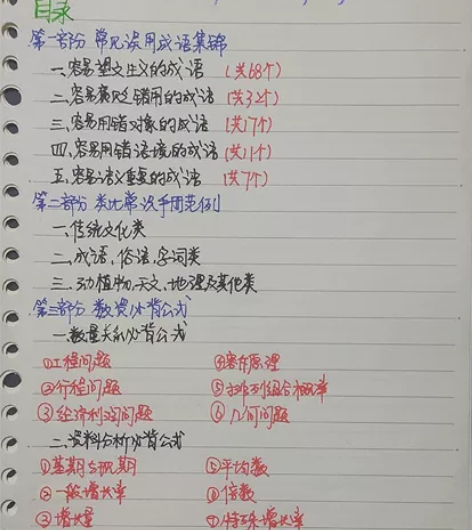 目录
第一部分 常见误用成语集锦
一、容易望文生义的成语 (共68个)
二、容易褒贬错用的成语 (共32个)
三、容易用错对象的成语 (共17个)
四、容易用错语境的成语 (共11个)
五、容易语义重复的成语 (共7个)
第二部分 类比常识手册范例
一、传统文化类
二、成语、俗语、字词类
三、动植物、天文、地理及其他类
第三部分 数资必背公式
一、数量关系必背公式
①工程问题 ④容斥原理
②行程问题 ⑤排列组合概率
③经济利润问题 ⑥几何问题
二、资料分析必背公式
①基期与现期 ⑤平均数
②一般增长率 ⑥倍数
③增长量 ⑦特殊增长率